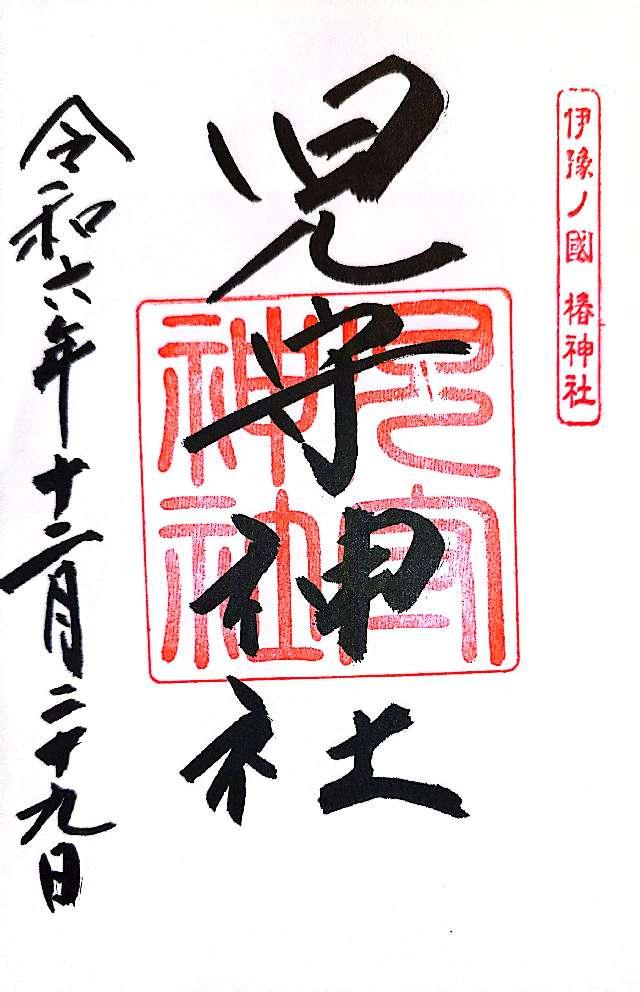 伊豫ノ國 椿神社
児守神社
児守神社
令和六年十二月二十九日